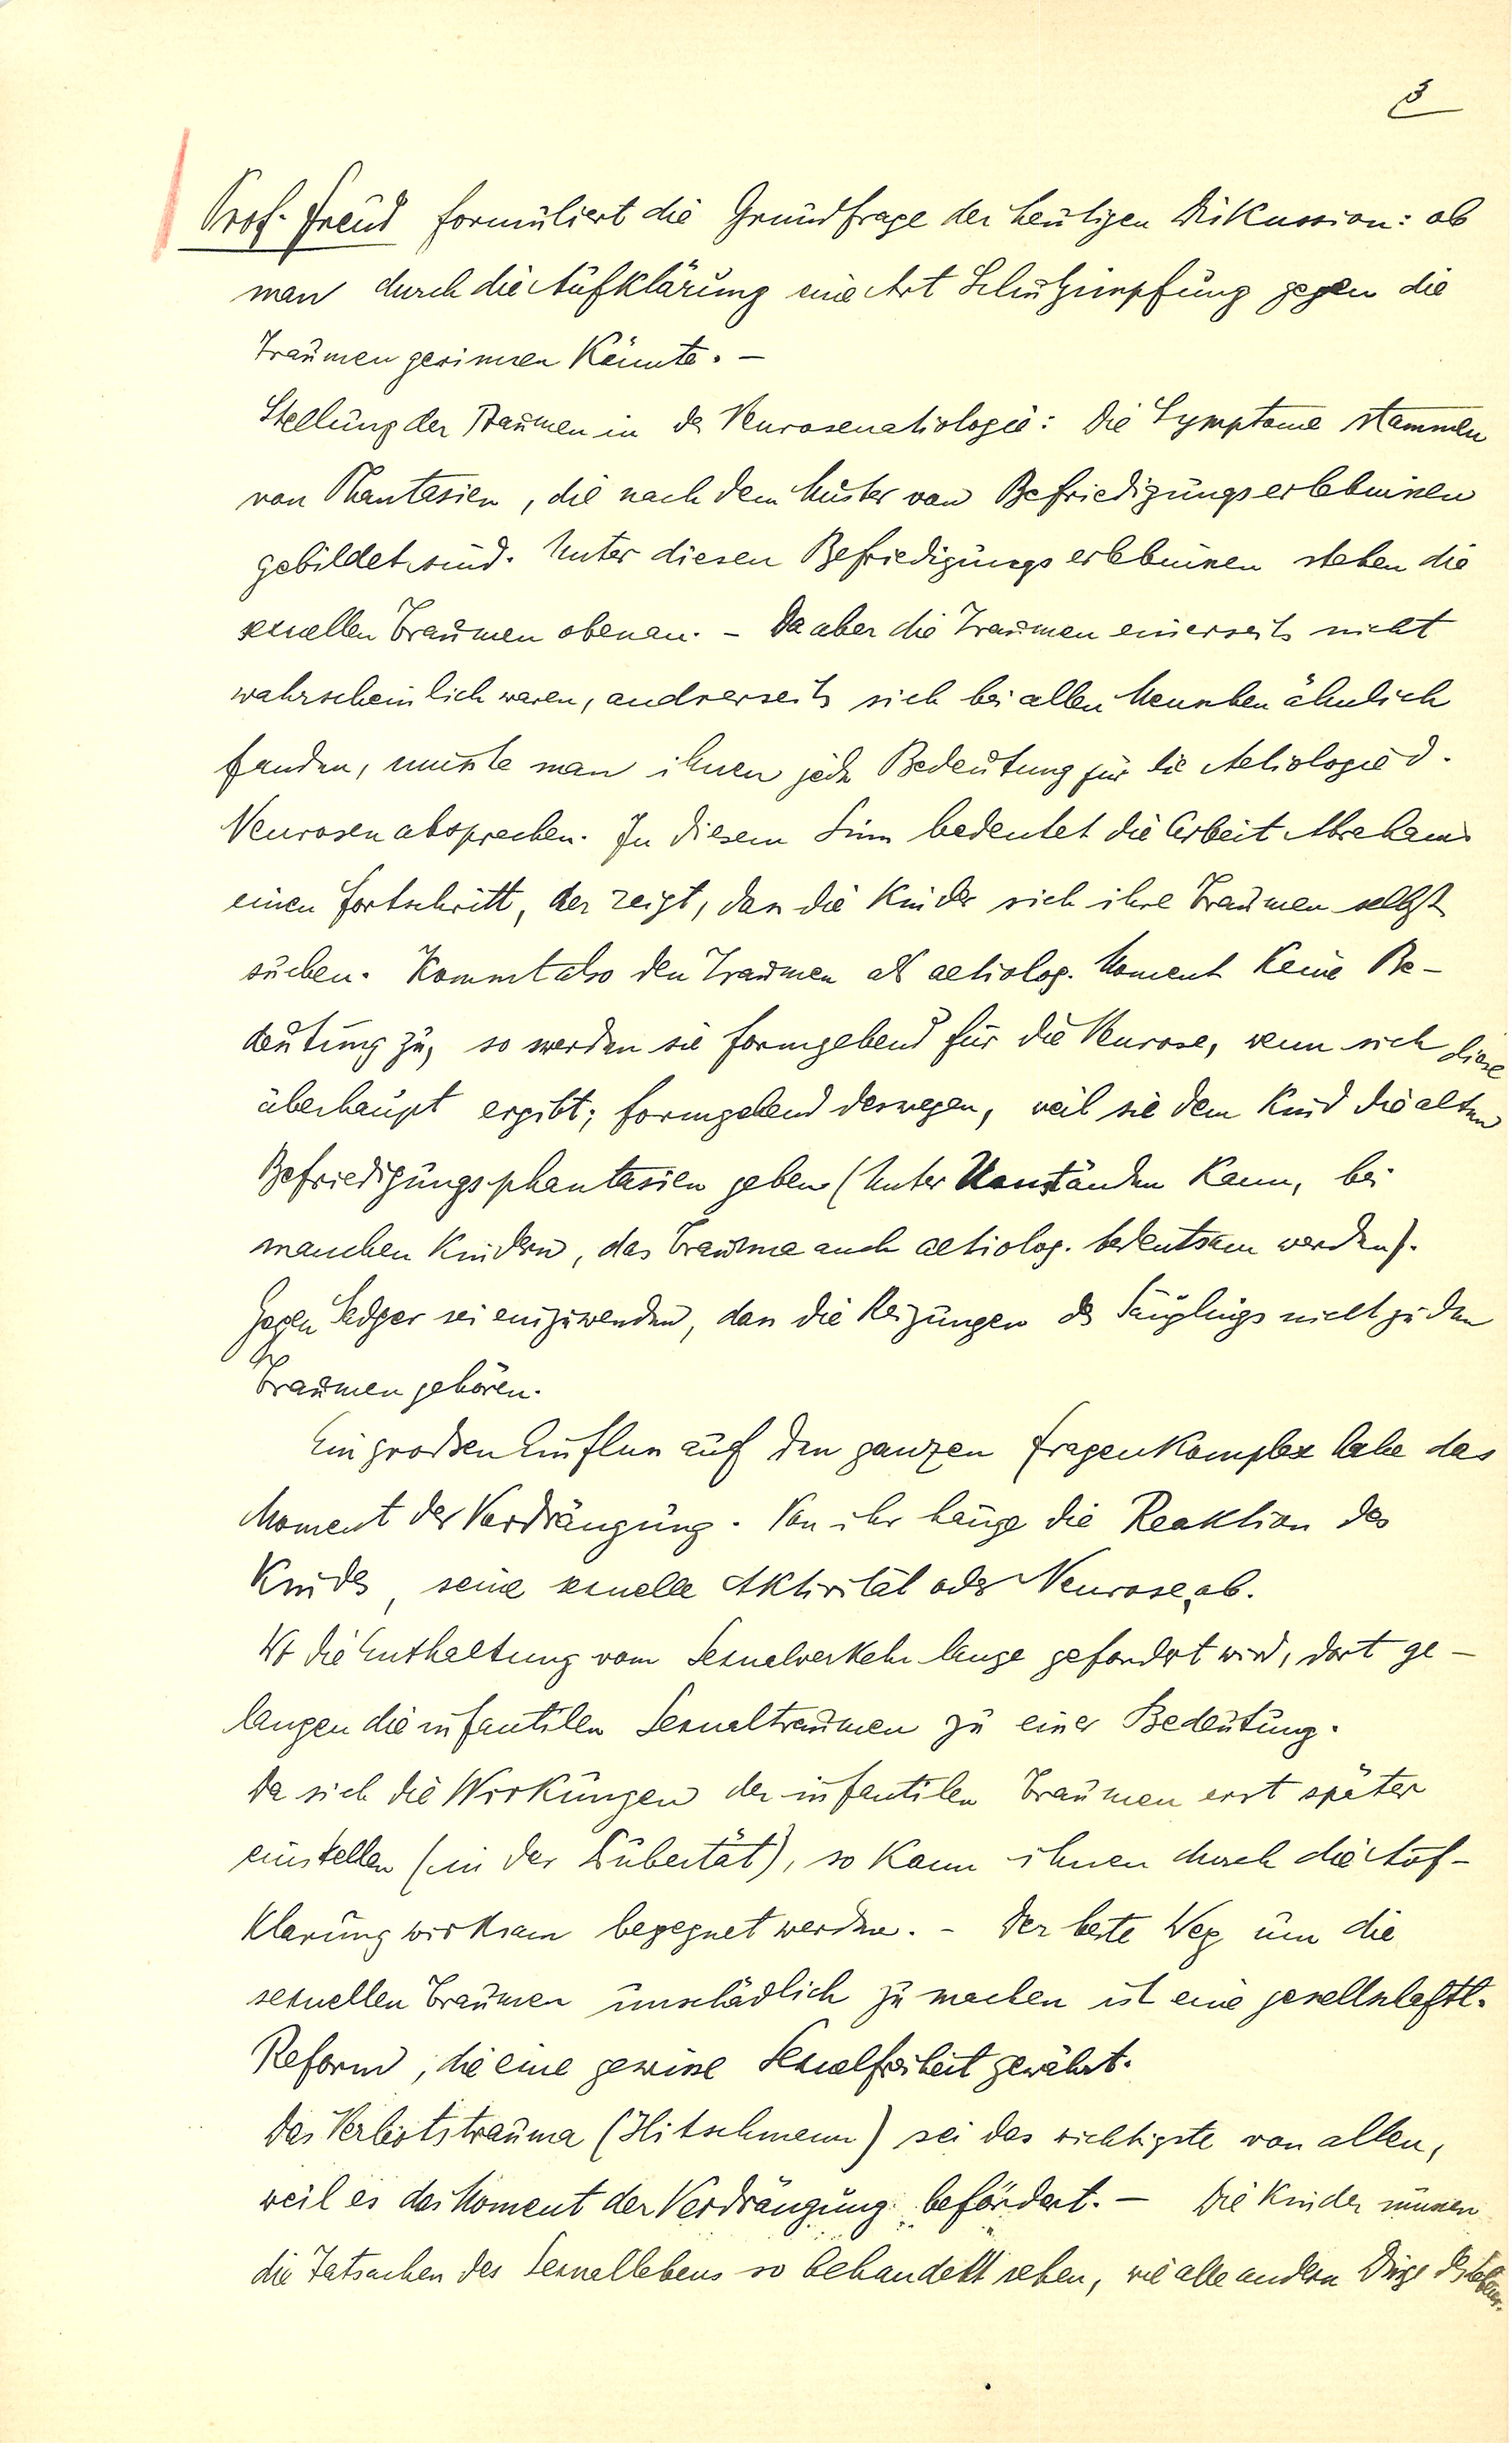 3
Prof. Freud formuliert die Grundfrage der heutigen Diskussion: ob
man durch die Aufklärung eine Art Schutzimpfung gegen die
Traumen gewinnen könnte. –
Stellung der Traumen in der Neurosenätiologie: Die Symptome stammen
von Phantasien, die nach dem Muster von Befriedigungserlebnissen
gebildet sind. Unter diesen Befriedigungserlebnissen stehen die
sexuellen Traumen obenan. – Da aber die Traumen einerseits nicht
wahrscheinlich waren, andrerseits sich bei allen Menschen ähnlich
fanden, musste man ihnen jede Bedeutung für die Aetiologie d.
Neurosen absprechen. In diesem Sinn bedeutet die Arbeit Abrahams
einen Fortschritt, der zeigt, dass die Kinder sich ihre Traumen selbst
suchen. Kommt also den Traumen als aetiolog. Moment keine Be-
deutung zu, so werden sie formgebend für die Neurose, wenn sich diese
überhaupt ergibt; formgebend deswegen, weil sie dem Kind die alten
Befriedigungsphantasien geben (Unter Umständen kann, bei
manchen Kindern, das Trauma auch aetiolog. bedeutsam werden).
Gegen Sadger sei einzuwenden, dass die Reizungen des Säuglings nicht zu den
Traumen gehören.
Ein grossen Einfluss auf den ganzen Fragenkomplex habe das
Moment der Verdrängung. Von ihr hänge die Reaktion des
Kindes, seine sexuelle Aktivität oder Neurose, ab.
Wo die Enthaltung vom Sexualverkehr lange gefordert wird, dort ge-
langen die infantilen Sexualtraumen zu einer Bedeutung.
Da sich die Wirkungen der infantilen Traumen erst später
einstellen (in der Pubertät), so kann ihnen durch die Auf-
klärung wirksam begegnet werden. – Der beste Weg um die
sexuellen Traumen unschädlich zu machen ist eine gesellschaftl.
Reform, die eine gewisse Sexualfreiheit gewährt.
Das Verbotstrauma (Hitschmann) sei das wichtigste von allen,
weil es das Moment der Verdrängung befördert. – Die Kinder müssen
die Tatsachen des Sexuallebens so behandelt sehen, wie alle andern Dinge des Lebens.